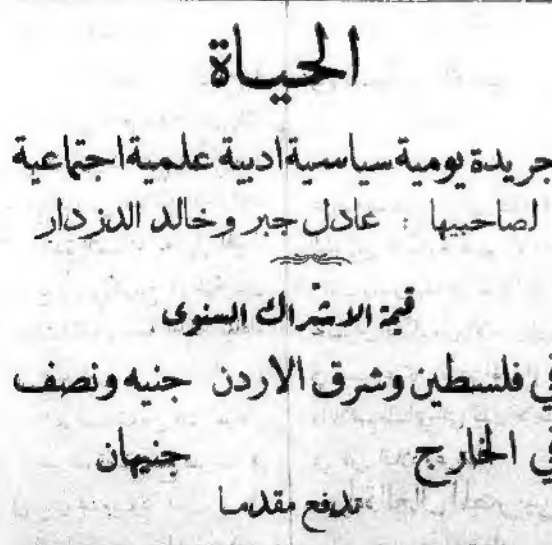 الحياة
جريدة يومية سياسية ادبية علمية اجتماعية
لصاحبيها : عادل جبر وخالد الدزدار
قيمة الاشتراك السنوى
في فلسطين وشرق الاردن جنيه ونصف
في الخارج جنيهان
تدفع مقدما